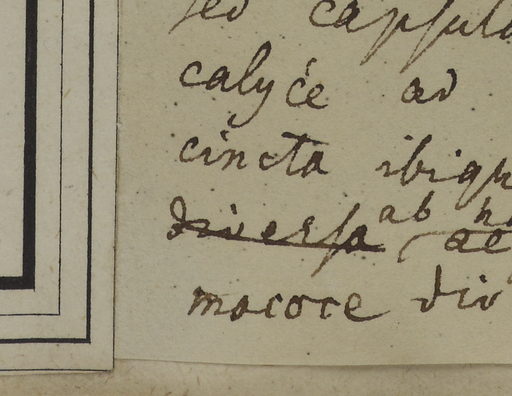 sed capsula
calyce ad
cincta ibiqu
diversa ab
macoce div